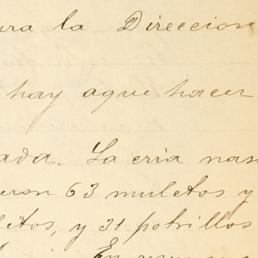 ura la Direccion
hay aque hacer
ada. La cria nas
eron 63 muletos y
etos, y 31 potrillos
En